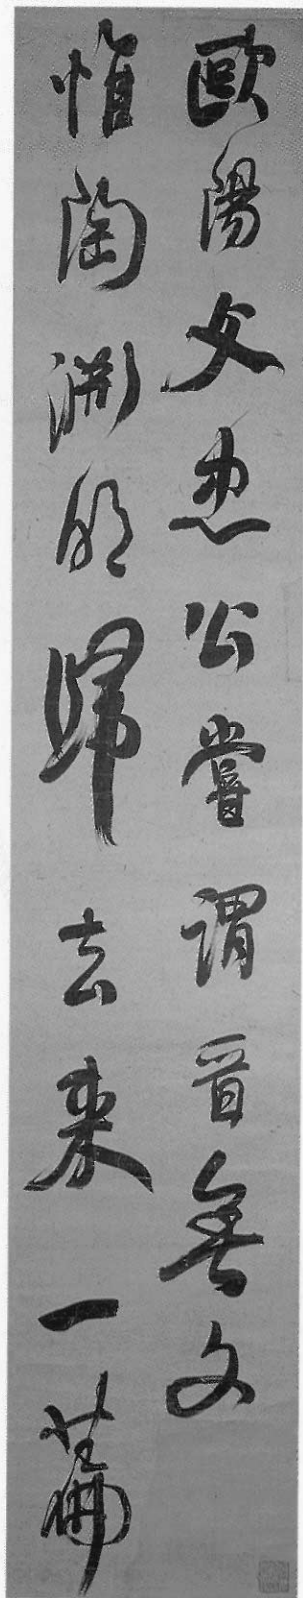 歐陽文忠公嘗謂晉無文
惟陶淵明歸去來一篇